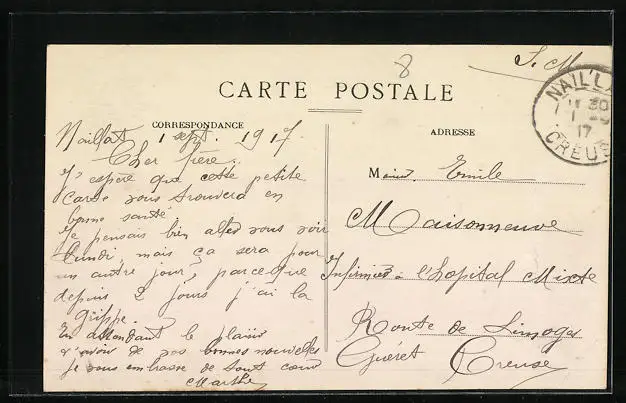 8
S. M
CARTE POSTALE
NAILLA
11 30
1 -9
17
CREUS
CORRESPONDANCE
ADRESSE
Naillat 1 sept. 1917.
Cher frère.
J'espère que cette petite
carte vous trouvera en
bonne santé.
Je pensais bien aller vous voir
lundi, mais ça sera pour
un autre jour, parceque
depuis 2 jours j'ai la
grippe.
En attendant le plaisir
d'avoir de vos bonnes nouvelles
je vous embrasse de tout cœur
Marthe
M Emile
Maisonneuve
Infirmier à l'hopital Mixte
Route de Limoges
Guéret Creuse